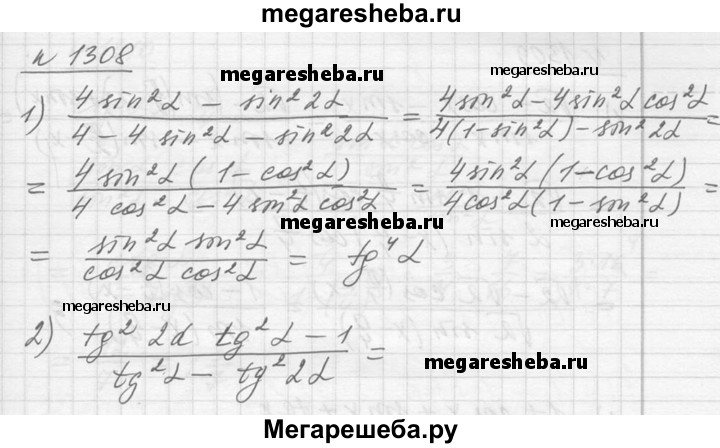 megaresheba.ru
n 1308
megaresheba.ru
megaresheba.ru
1) (4 sin²α − sin²2α) / (4 − 4 sin²α − sin²2α) = (4 sin²α − 4 sin²α cos²α) / (4(1 − sin²α) − sin²2α) =
= (4 sin²α (1 − cos²α)) / (4 cos²α − 4 sin²α cos²α) = (4 sin²α (1 − cos²α)) / (4 cos²α (1 − sin²α)) =
megaresheba.ru
megaresheba.ru
= (sin²α sin²α) / (cos²α cos²α) = tg⁴α
megaresheba.ru
2) (tg²2α tg²α − 1) / (tg²α − tg²2α) =
megaresheba.ru
Мегарешеба.ру